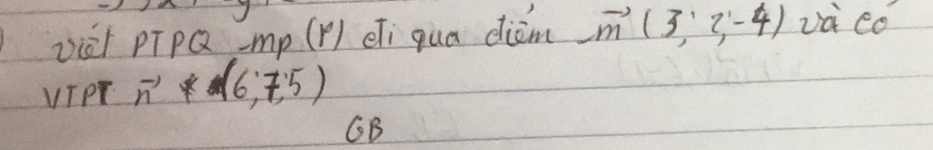 viết PTPQ mp (P) đi qua điểm m⃗ (3; 2; -4) và có
VTPT n⃗ (6; 7; 5)
GB